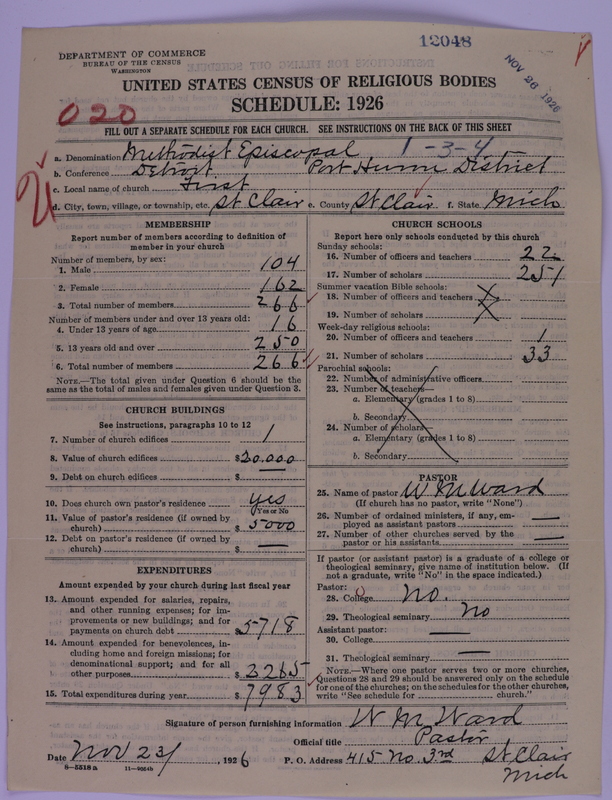 12048
DEPARTMENT OF COMMERCE
BUREAU OF THE CENSUS
WASHINGTON
NOV 26 1926
UNITED STATES CENSUS OF RELIGIOUS BODIES
SCHEDULE: 1926
020
FILL OUT A SEPARATE SCHEDULE FOR EACH CHURCH. SEE INSTRUCTIONS ON THE BACK OF THIS SHEET
a. Denomination Methodist Episcopal 1-3-4
b. Conference Detroit Port Huron District
c. Local name of church First
d. City, town, village, or township, etc. St Clair e. County St Clair f. State Mich
MEMBERSHIP
Report number of members according to definition of
member in your church
Number of members, by sex:
1. Male 104
2. Female 162
3. Total number of members 266
Number of members under and over 13 years old:
4. Under 13 years of age 16
5. 13 years old and over 250
6. Total number of members 266
NOTE.—The total given under Question 6 should be
the same as the total of males and females given under Question 3.
CHURCH BUILDINGS
See instructions, paragraphs 10 to 12
7. Number of church edifices 1
8. Value of church edifices $20.000
9. Debt on church edifices $ —
10. Does church own pastor's residence yes
(Yes or No
11. Value of pastor's residence (if owned by
church) $5000
12. Debt on pastor's residence (if owned by
church) $ —
EXPENDITURES
Amount expended by your church during last fiscal year
13. Amount expended for salaries, repairs,
and other running expenses; for im-
provements or new buildings; and for
payments on church debt $5718
14. Amount expended for benevolences, in-
cluding home and foreign missions; for
denominational support; and for all
other purposes $2265
15. Total expenditures during year $7983
CHURCH SCHOOLS
Report here only schools conducted by this church
Sunday schools:
16. Number of officers and teachers 22
17. Number of scholars 251
Summer vacation Bible schools:
18. Number of officers and teachers
19. Number of scholars
Week-day religious schools:
20. Number of officers and teachers 1
21. Number of scholars 33
Parochial schools:
22. Number of administrative officers
23. Number of teachers—
a. Elementary (grades 1 to 8)
b. Secondary
24. Number of scholars—
a. Elementary (grades 1 to 8)
b. Secondary
PASTOR
25. Name of pastor W M Ward
(If church has no pastor, write "None")
26. Number of ordained ministers, if any, em-
ployed as assistant pastors —
27. Number of other churches served by the
pastor or his assistants —
If pastor (or assistant pastor) is a graduate of a college or
theological seminary, give name of institution below. (If
not a graduate, write "No" in the space indicated.)
Pastor:
28. College No.
29. Theological seminary No
Assistant pastor:
30. College —
31. Theological seminary —
NOTE.—Where one pastor serves two or more churches,
Questions 28 and 29 should be answered only on the schedule
for one of the churches; on the schedules for the other churches,
write "See schedule for church."
Signature of person furnishing information W M Ward
Official title Pastor
Date Nov 23/, 1926 P. O. Address 415 No. 3rd St Clair
Mich
8—5518a 11—9054b